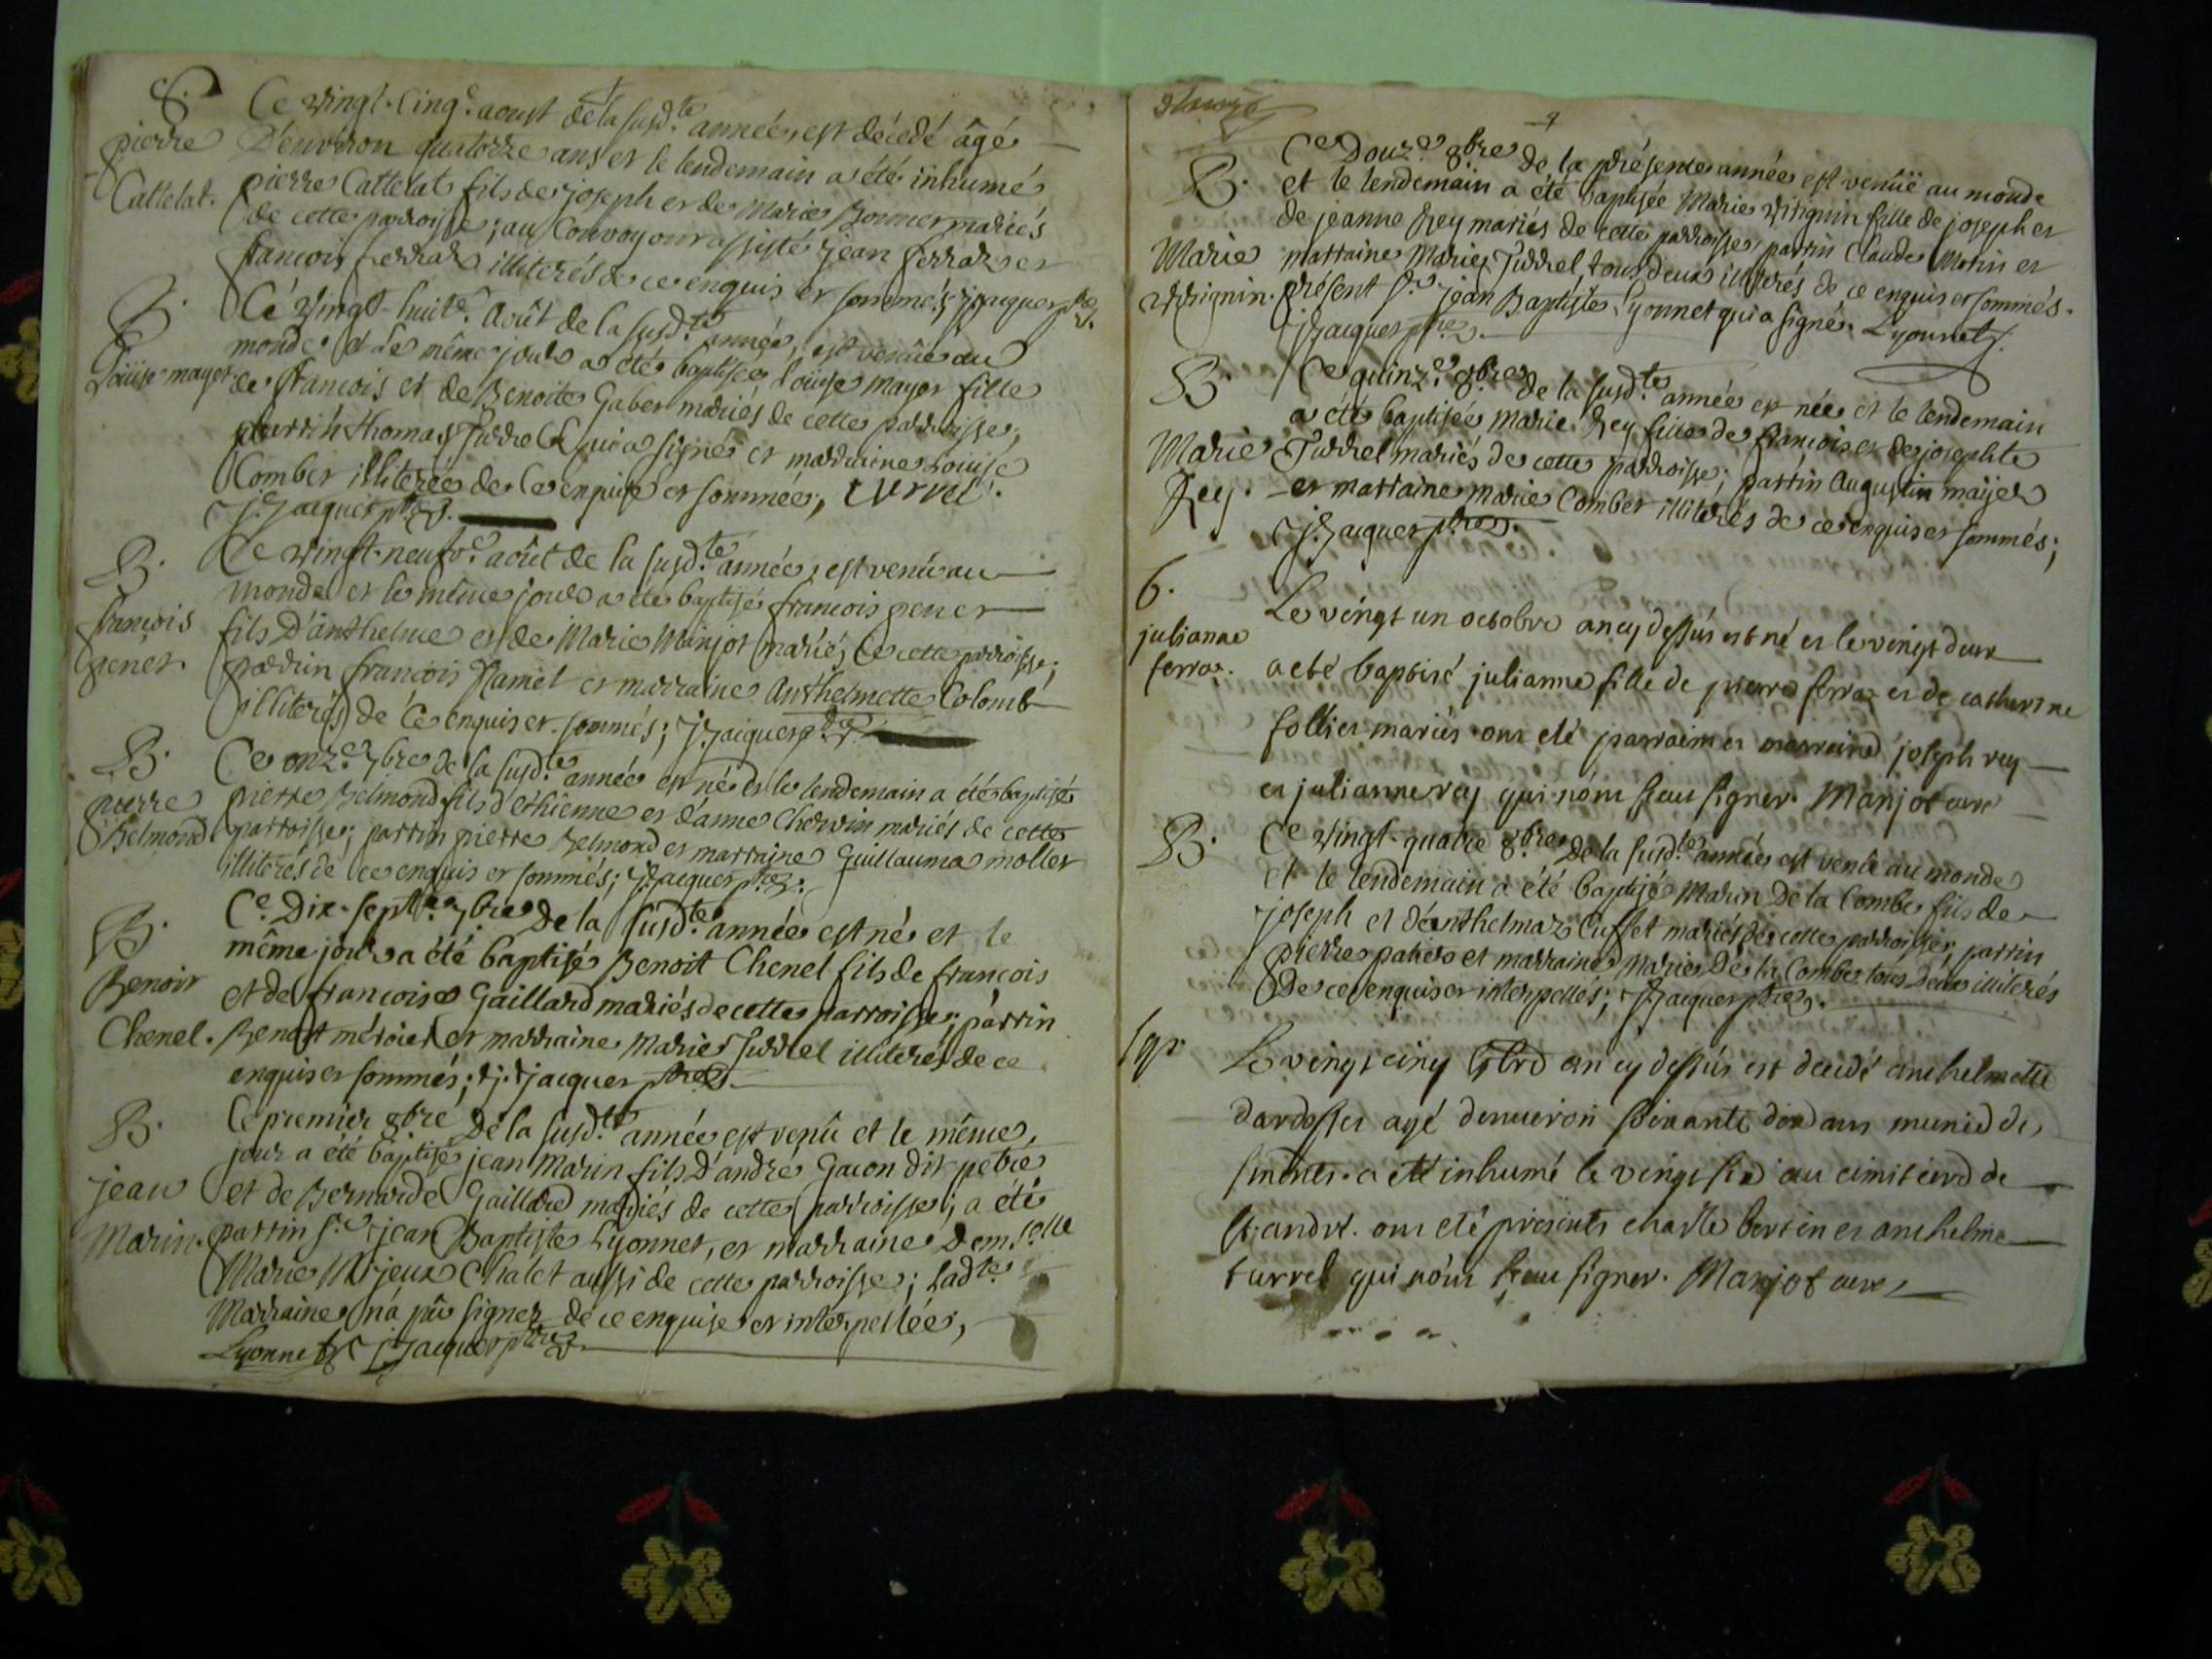 S.
pierre
Cattelat.
Ce vingt-cinq.e aoust de la susd.te année, est décedé âgé
D'environ quatorze ans et le lendemain a été inhumé
pierre Cattelat fils de joseph et de Marie Bonnet mariés
de cette parroisse; au Convoy ont assisté jean ferraz et
francois ferraz illiterés de ce enquis et sommés; j: jacquer ptre
B.
Loüise mayer
Ce vingt-huit.e Août de la susd.te année, est venüe au
monde et le même jour a été baptisée Loüise mayer fille
de francois et de Benoite Gaber mariés de cette parroisse;
parrin thomas Turrel qui a signé et marraine Loüise
Comber illiterée de ce enquise et sommée, turrel.
j: jacquer ptre
B.
francois
gener.
Ce vingt-neufv.e aoüt de la susd.te année, est venu au
monde et le même jour a été baptisé francois gener
fils D'anthelme et de Marie Manjot mariés de cette parroisse;
parrin francois hamel et marraine Anthelmette Colomb
illiterés de ce enquis et sommés; j: jacquer ptre
B.
pierre
Belmond
Ce onz.e 7bre de la susd.te année est né et le lendemain a été baptisé
pierre Belmond fils d'ethienne et d'anne Chervin mariés de cette
parroisse; parrin pierre Belmond et marraine Guillauma moller
illiterés de ce enquis et sommés; j: jacquer ptre.
B.
Benoit
Chenel.
Ce Dix-sept.e 7bre De la susd.te année est né et le
même jour a été baptisé Benoit Chenel fils de francois
et de francoise Gaillard mariés de cette parroisse; parrin
Benoit mérier et marraine Marie Turrel illiterés de ce
enquis et sommés; j: jacquer ptre
B.
jean
Marin.
Ce premier 8bre De la susd.te année est venû et le même
jour a été baptisé jean Marin fils D'andré Gacon dit petre
et de Bernarde Gaillard mariés de cette parroisse; a été
parrin s.r jean Baptiste Lyonnet, et marraine Dem.selle
Marie Chalet aussi de cette parroisse; Lad.te
Marraine n'a pû signer de ce enquise et interpellée,
Lyonnet j: jacquer ptre
9
B.
Marie
Ce Douz.e 8bre de la présente année est venüe au monde
et le lendemain a été baptisée Marie vitignin fille de joseph et
de jeanne Rey mariés de cette parroisse, parrin Claude Morin et
marraine Marie Turrel, tous deux illiterés de ce enquis et sommés.
présent s.r jean Baptiste Lyonnet qui a signé. Lyonnet
j: jacquer ptre
B.
Marie
Rey.
Ce quinz.e 8bre de la susd.te année est née et le lendemain
a été baptisée Marie Rey fille de francois et de josephte
Turrel mariés de cette parroisse; parrin Augustin maijer
et marraine marie Comber illiterés de ce enquis et sommés;
j: jacquer ptre.
6.
julianne
ferraz.
Le vingt un octobre an cy dessus est né et le vingt deux
a eté baptisé julianne fille de pierre ferraz et de catherine
follier mariés ont eté parrain et marraine joseph rey
et julianne rey qui n'ont sceu signer. Manjot curé
B.
Ce vingt-quatre 8bre De la susd.te année est venû au monde
et le lendemain a été baptisé Marin De la Combe fils de
joseph et d'anthelmaz Cusset mariés de cette parroisse, parrin
pierre patier et marraine Marie De la Combe tous Deux illiterés
De ce enquis et interpellés; j: jacquer ptre.
Sepr
Le vingt cinq 8brd an cy dessus est decidé anthelmette
dardosser agé denviron soixante dix ans munie de
a eté inhumé le vingt six au cimitierd de
st. andré. ont eté présents charle bertin et anthelme
turrel qui n'ont sceu signer. Manjot curé